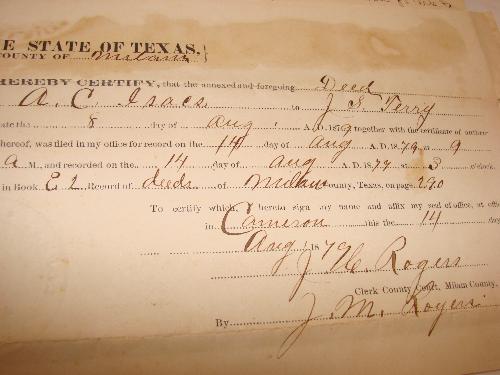 E STATE OF TEXAS,
COUNTY OF Milam
HEREBY CERTIFY, that the annexed and foregoing Deed
A. C. Isacs to J S Terry
ate the 8 day of Aug A. D. 1879 together with the certificate of authen
hereof, was filed in my office for record on the 14 day of Aug A. D. 1879 at 9
A M., and recorded on the 14 day of Aug A. D. 1879 at 3 o'clock
in Book E 2, Record of deeds of Milam County, Texas, on page 290
To certify which, I herein sign my name and affix my seal of office, at offi
in Cameron this the 14 day
Aug 1879
Rogers
Clerk County Court, Milam County.
By J. M. Rogers